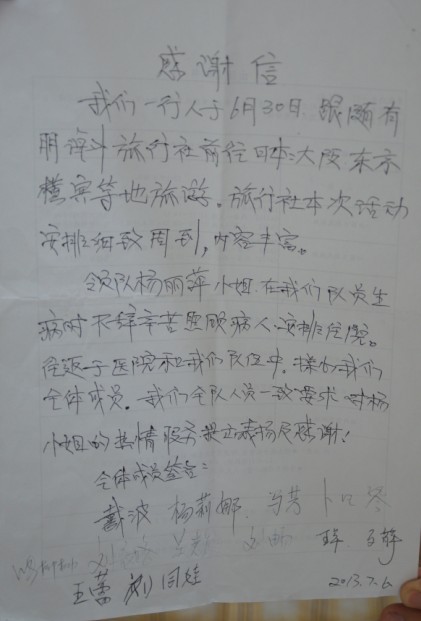 感谢信
我们一行人于6月30日跟随有
明 旅行社前往日本:大阪东京
横宾等地旅游。旅行社本次活动
安排细致周到,内容丰富。
领队杨丽萍小姐在我们队员生
病时不辞辛苦照顾病人、安排住院。
往返于医院和我们队伍中。 我们
全体成员。我们全队人员一致要求对杨
小姐的热情服务提出表扬及感谢!
全体成员签名:
戴波 杨莉娜 马芳
刘
王蕾 刘
2013.7.6